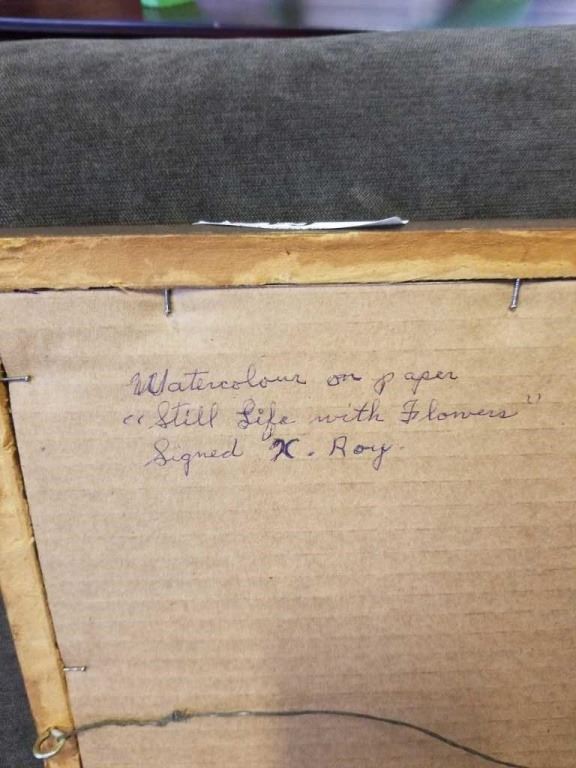 Watercolour on paper
"Still Life with Flowers"
Signed X. Roy.